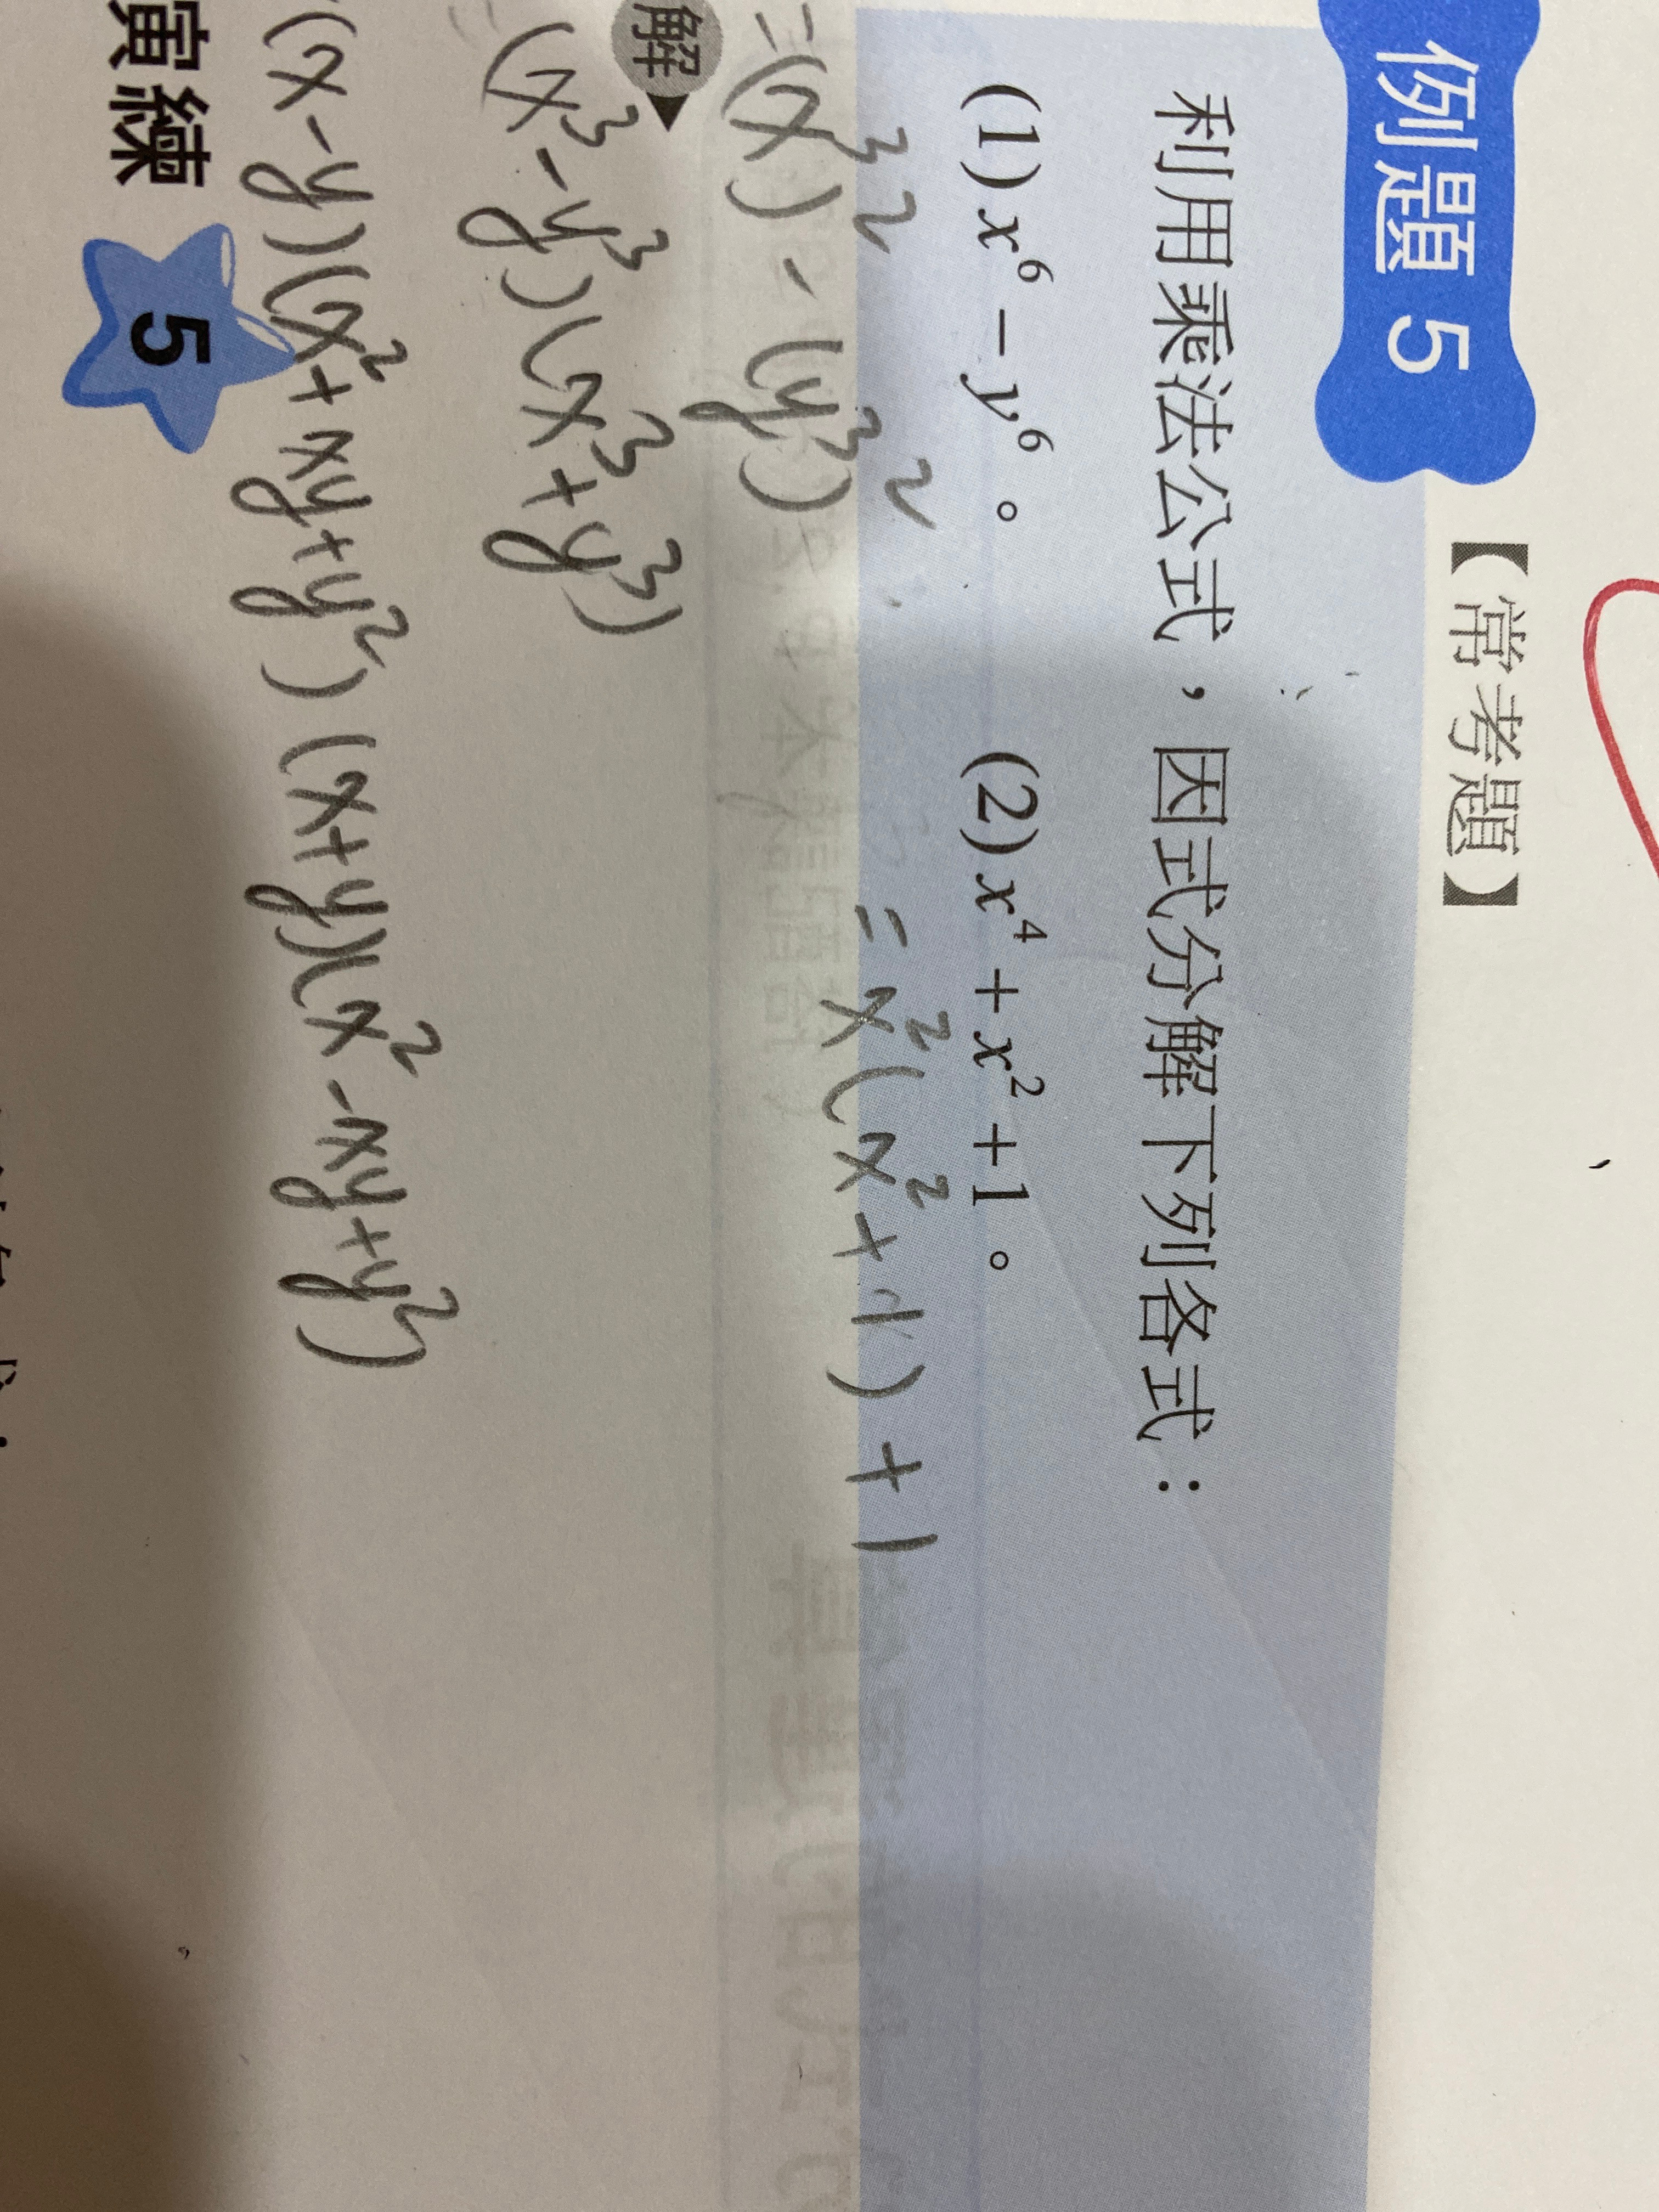 例題 5 【常考題】
利用乘法公式，因式分解下列各式：
(1) x⁶ − y⁶。 (2) x⁴ + x² + 1。
=(x³)² - (y³)² = x²(x²+1)+1
解
=(x³-y³)(x³+y³)
(x-y)(x²+xy+y²)(x+y)(x²-xy+y²)
演練 5